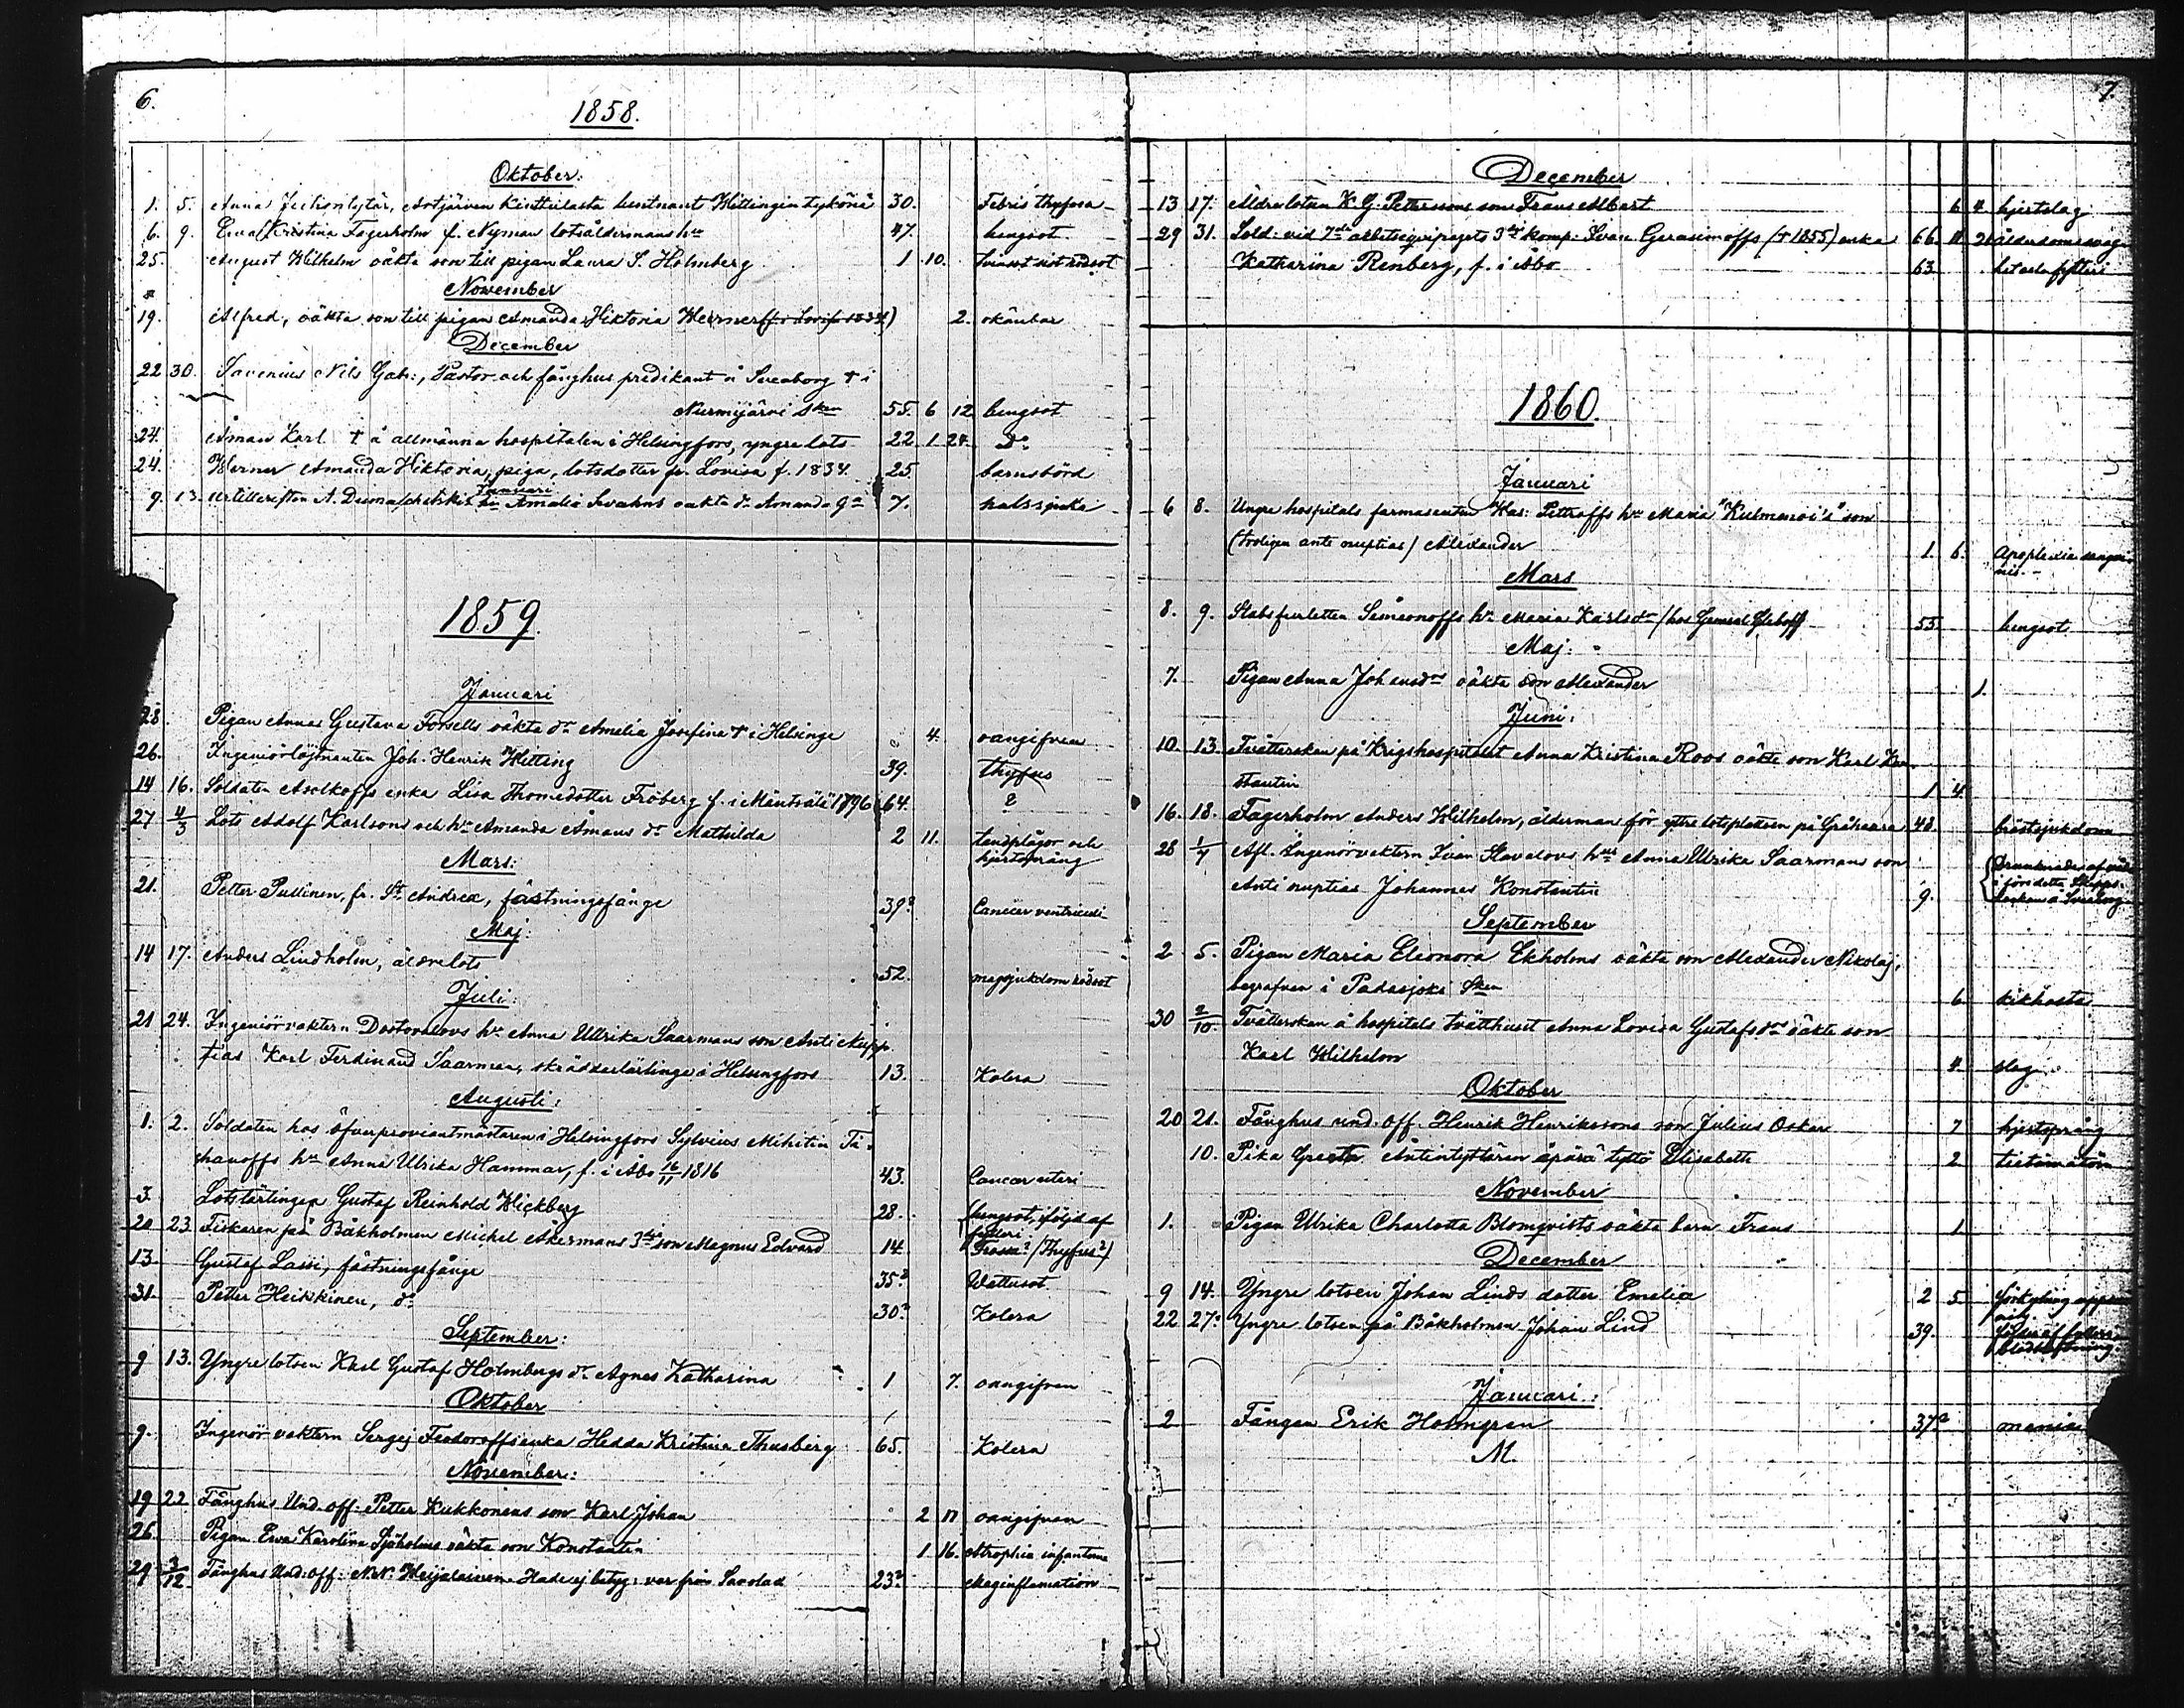 6.
1858.
Oktober:
1. 5. Anna Artjärven Hittingin 30. Febris thyfosa
6. 9. Eva Kristina Fagerholm f. Nyman lotsåldermans hru 47. lungsot
25. August Wilhelm oäkta son till pigan Laura S. Holmberg 1 10.
November
19. Alfred, oäkta son till pigan Amanda Wiktoria Werner 2. okänbar
December
22 30. Savenius Nils Gabr:, Pastor och fånghus predikant å Sveaborg † i
Nurmijärvi sken 55. 6 12 lungsot
24. Åman Karl † å allmänna hospitalen i Helsingfors, yngre lots 22 1 24. Do
24. Werner Amanda Wiktoria, piga, lotsdotter fr. Lovisa f. 1834. 25 barnsbörd
Januari
9. 13. Artilleristen A. hu Amalia Svahns oäkta dr Amanda 7. halssjuka
1859.
Januari
28. Pigan Annas Gustava Forsells oäkta dr Amelia Josefina † i Helsinge 4. oangifven
26. Ingeniörlöjtnanten Joh. Henrik Hitting 39. thyfus
14 16. Soldaten Asolkoffs enka Lisa Thomedotter Fröberg f. i Mäntsälä 1796 64. ?
27 4/3 Lots Adolf Karlsons och hu Amanda Åmans dr Mathilda 2 11. tandplågor och
hjertsprång
Mars:
21. Petter Pullinen, fr. St. Andrea, fästningsfånge 39? Cancer ventriculi
Maj:
14 17. Anders Lindholm, äldre lots 52. magsjukdom rödsot
Juli:
21 24. Ingeniörvaktern Dostovalovs hu Anna Ullrika Saarmans son Anti nupp
tias Karl Ferdinand Saarman, skräddarlärlinge i Helsingfors 13. Kolera
Augusti:
1. 2. Soldaten hos öfverproviantmästaren i Helsingfors Sylvius Mihitin Ti
hanoffs hu Anna Ulrika Hammar, f. i Åbo 16/11 1816 43. Cancer uteri
3. Lotslärlingen Gustaf Reinhold Wickberg 28. lungsot, i följd af
fylleri
20 23 Fiskaren på Båkholmen Michel Åkermans 3dje son Magnus Edvard 14 Frossa? (Thyfus?)
13. Gustaf Lassi, fästningsfånge 35? Wattusot
31. Petter Heikkinen, do 30? Kolera
September:
9 13. Yngre lotsen Karl Gustaf Holmbergs dr Agnes Katharina 1 7. oangifven
Oktober
9. Ingenör vaktern Sergej Feodoroffs enka Hedda Kristina Thusberg 65. Kolera
November:
19 22 Fånghus Und. off. Petter Kukkonens son Karl Johan 2 11 oangifven
26. Pigan Eva Karolina Sjöholms oäkta son Konstantin 1 16. Atrophia infantum
29 3/12 Fånghus Und. off: N.N. Weijalainen. Hade ej betyg: var från Savolad 23? Maginflamation
7.
December
13 17. Äldre lotsen K. G. Peterssons son Frans Albert 6 4 hjertslag
29 31. Sold. vid 7de arbetsequipagets 3dje komp. Ivan Gerasimoffs († 1855) enka 66. 11 21 ålderdomssvag
Katharina Renberg, f. i Åbo 63.
1860.
Januari
6 8. Yngre hospitals farmaceuten Was: Pettroffs hu Maria "Kulmanoi's" son
(troligen ante nuptias) Alexander 1. 6. Apoplexia sangvi-
nis.
Mars
8. 9. Stabsfurletten Simeonoffs hu Maria Karlsdr (hos General Gleboff 55. lungsot
Maj:
7. Pigan Anna Johansdrs oäkta son Alexander 1.
Juni:
10. 13. Tvätterskan på Krigshospitalet Anna Kristina Roos oäkte son Karl Kon
stantin 1 4.
16. 18. Fagerholm Anders Wilhelm, ålderman för yttre lotsplatsen på Gråhara 48. bröstsjukdom
28 1/7 Afl. Ingenörvaktern Ivan Slavelovs hus Anna Ulrika Saarmans son
Anti nuptias Johannes Konstantin 9.
September
2 5. Pigan Maria Eleonora Ekholms oäkta son Alexander Nikolaj,
begrafven i Padasjoki Sken 6. kikhosta
30 2/10. Tvätterskan å hospitals tvätthuset Anna Lovisa Gustafsdrs oäkte son
Karl Wilhelm 4. slag
Oktober
20 21. Fånghus und. off. Henrik Henrikssons son Julius Oskar 7 hjertsprång
10. Pika Greeta Äntintyttären äpärä tyttö Elisabeth 2 tietämätön
November
1. Pigan Ulrika Charlotta Blomqvists oäkta barn Frans 1
December
9 14. Yngre lotsen Johan Linds dotter Emelia 2 5.
22 27. Yngre lotsen på Båkholmen Johan Lind 39.
Januari:
2 Fången Erik Holmgren 37? mania
M.